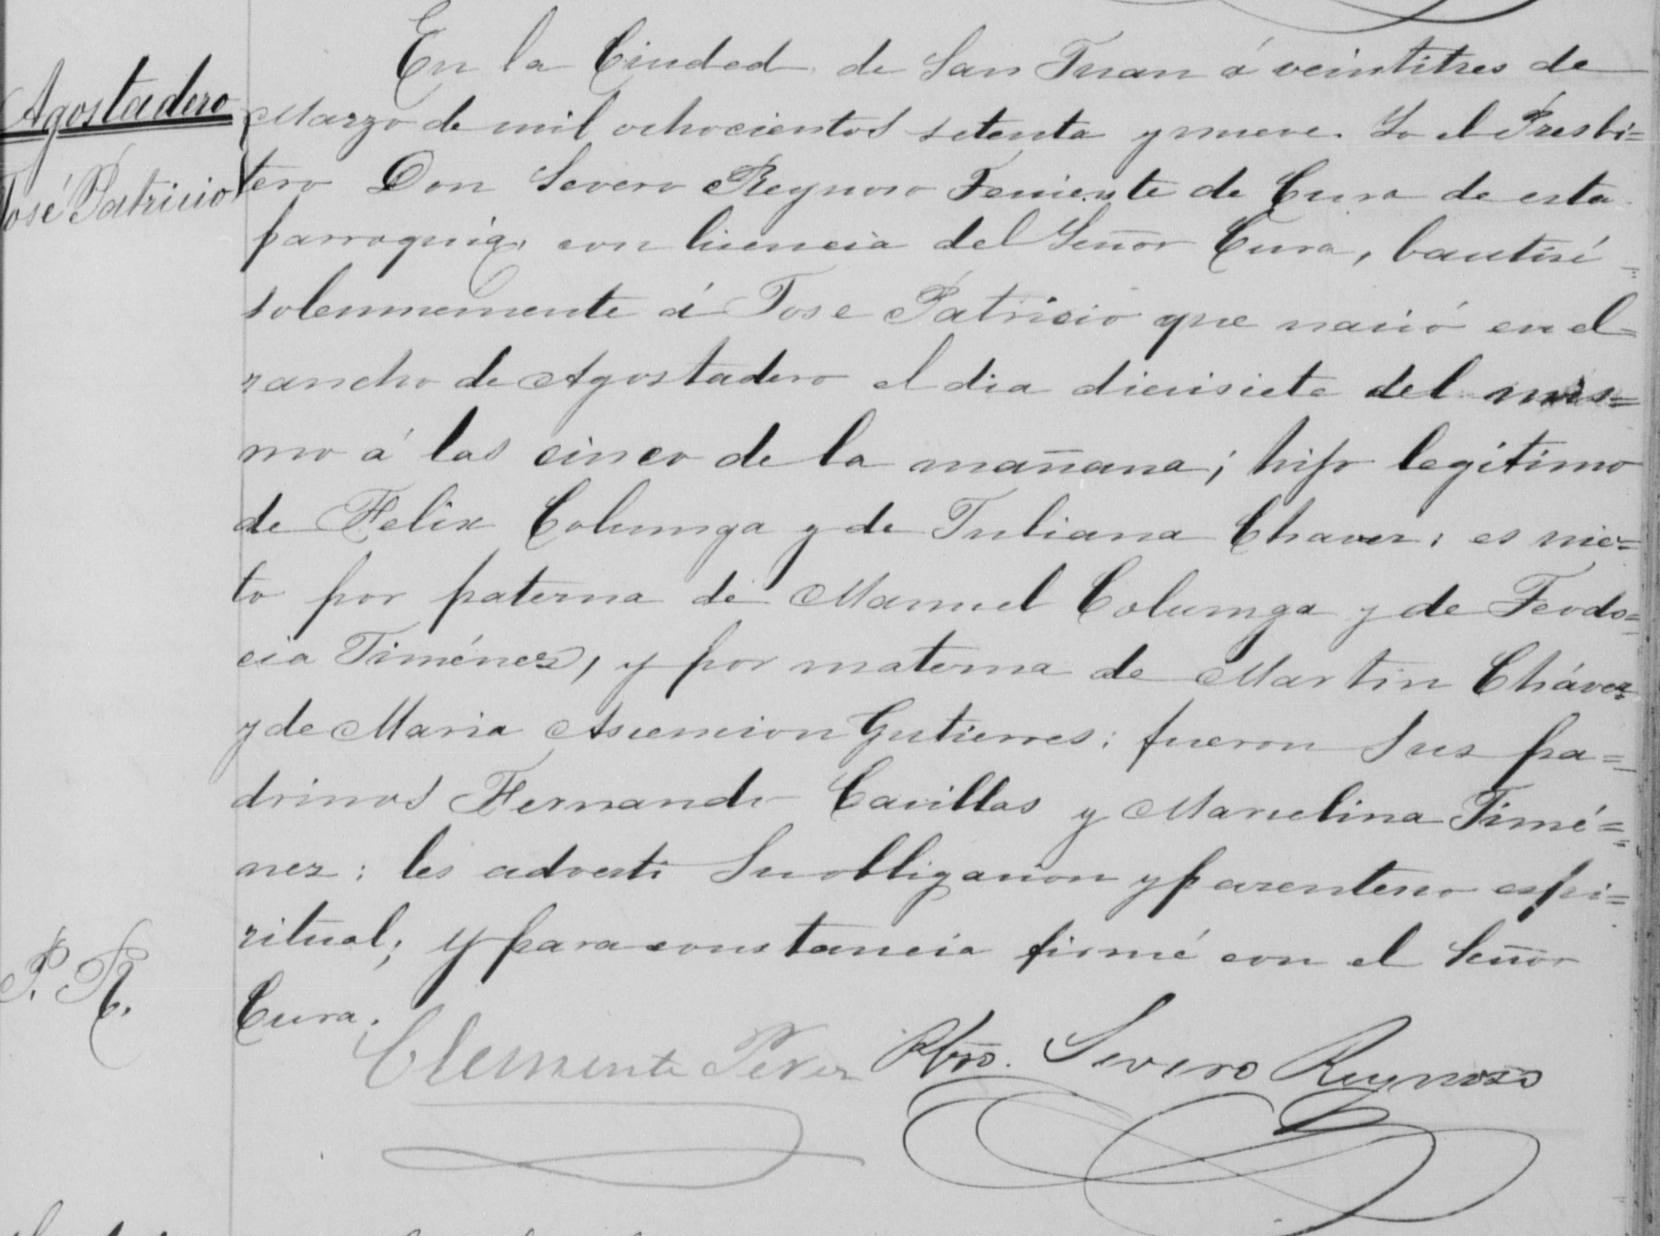 Agostadero
José Patricio
En la Ciudad de San Juan á veintitres de
Marzo de mil ochocientos setenta y nueve. Yo el Presbi=
tero Don Severo Reynoso Teniente de Cura de esta
parroquia, con licencia del Señor Cura, bautisé
solemnemente á Jose Patricio que nació en el=
rancho de Agostadero el dia diecisiete del mis=
mo á las cinco de la mañana; hijo legitimo
de Felix Columga y de Juliana Chavez; es nie=
to por paterna de Manuel Columga y de Teodo=
cia Jiménez, y por materna de Martin Chávez
y de Maria Ascencion Gutierres: fueron sus pa=
drinos Fernando Casillas y Marcelina Jimé=
nez: les adverti su obligacion y parentesco espi=
ritual; y para constancia firmé con el Señor
Cura.
P. R.
Clemente Perez Pbro. Severo Reynoso